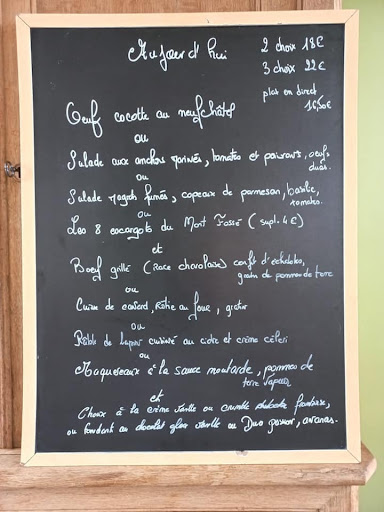 Aujourd'hui
2 choix 18€
3 choix 22€
plat en direct
16,50€
Oeuf cocotte au neufchâtel
ou
Salade aux anchois marinés, tomates et poivrons, oeufs
durs.
ou
Salade magrets fumés, copeaux de parmesan, basilic,
tomates.
ou
Les 8 escargots du Mont Fossé (supl. 4€)
et
Boeuf grillé (Race charolaise) confit d'échalotes,
grain de pommes de terre
ou
Cuisse de canard, Rôtie au four, gratin
ou
Râble de Lapin cuisiné au cidre et crème céleri
ou
Maquereaux à la sauce moutarde, pommes de
terre vapeur
et
Choux à la crème vanille ou crumble rhubarbe framboise,
ou fondant au chocolat glace vanille ou Duo passion, ananas.